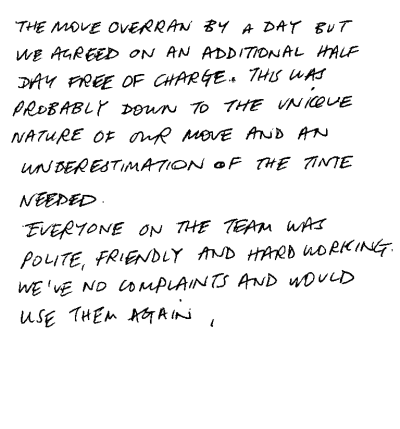 THE MOVE OVERRAN BY A DAY BUT
WE AGREED ON AN ADDITIONAL HALF
DAY FREE OF CHARGE. THIS WAS
PROBABLY DOWN TO THE UNIQUE
NATURE OF OUR MOVE AND AN
UNDERESTIMATION OF THE TIME
NEEDED.
EVERYONE ON THE TEAM WAS
POLITE, FRIENDLY AND HARD WORKING.
WE'VE NO COMPLAINTS AND WOULD
USE THEM AGAIN,